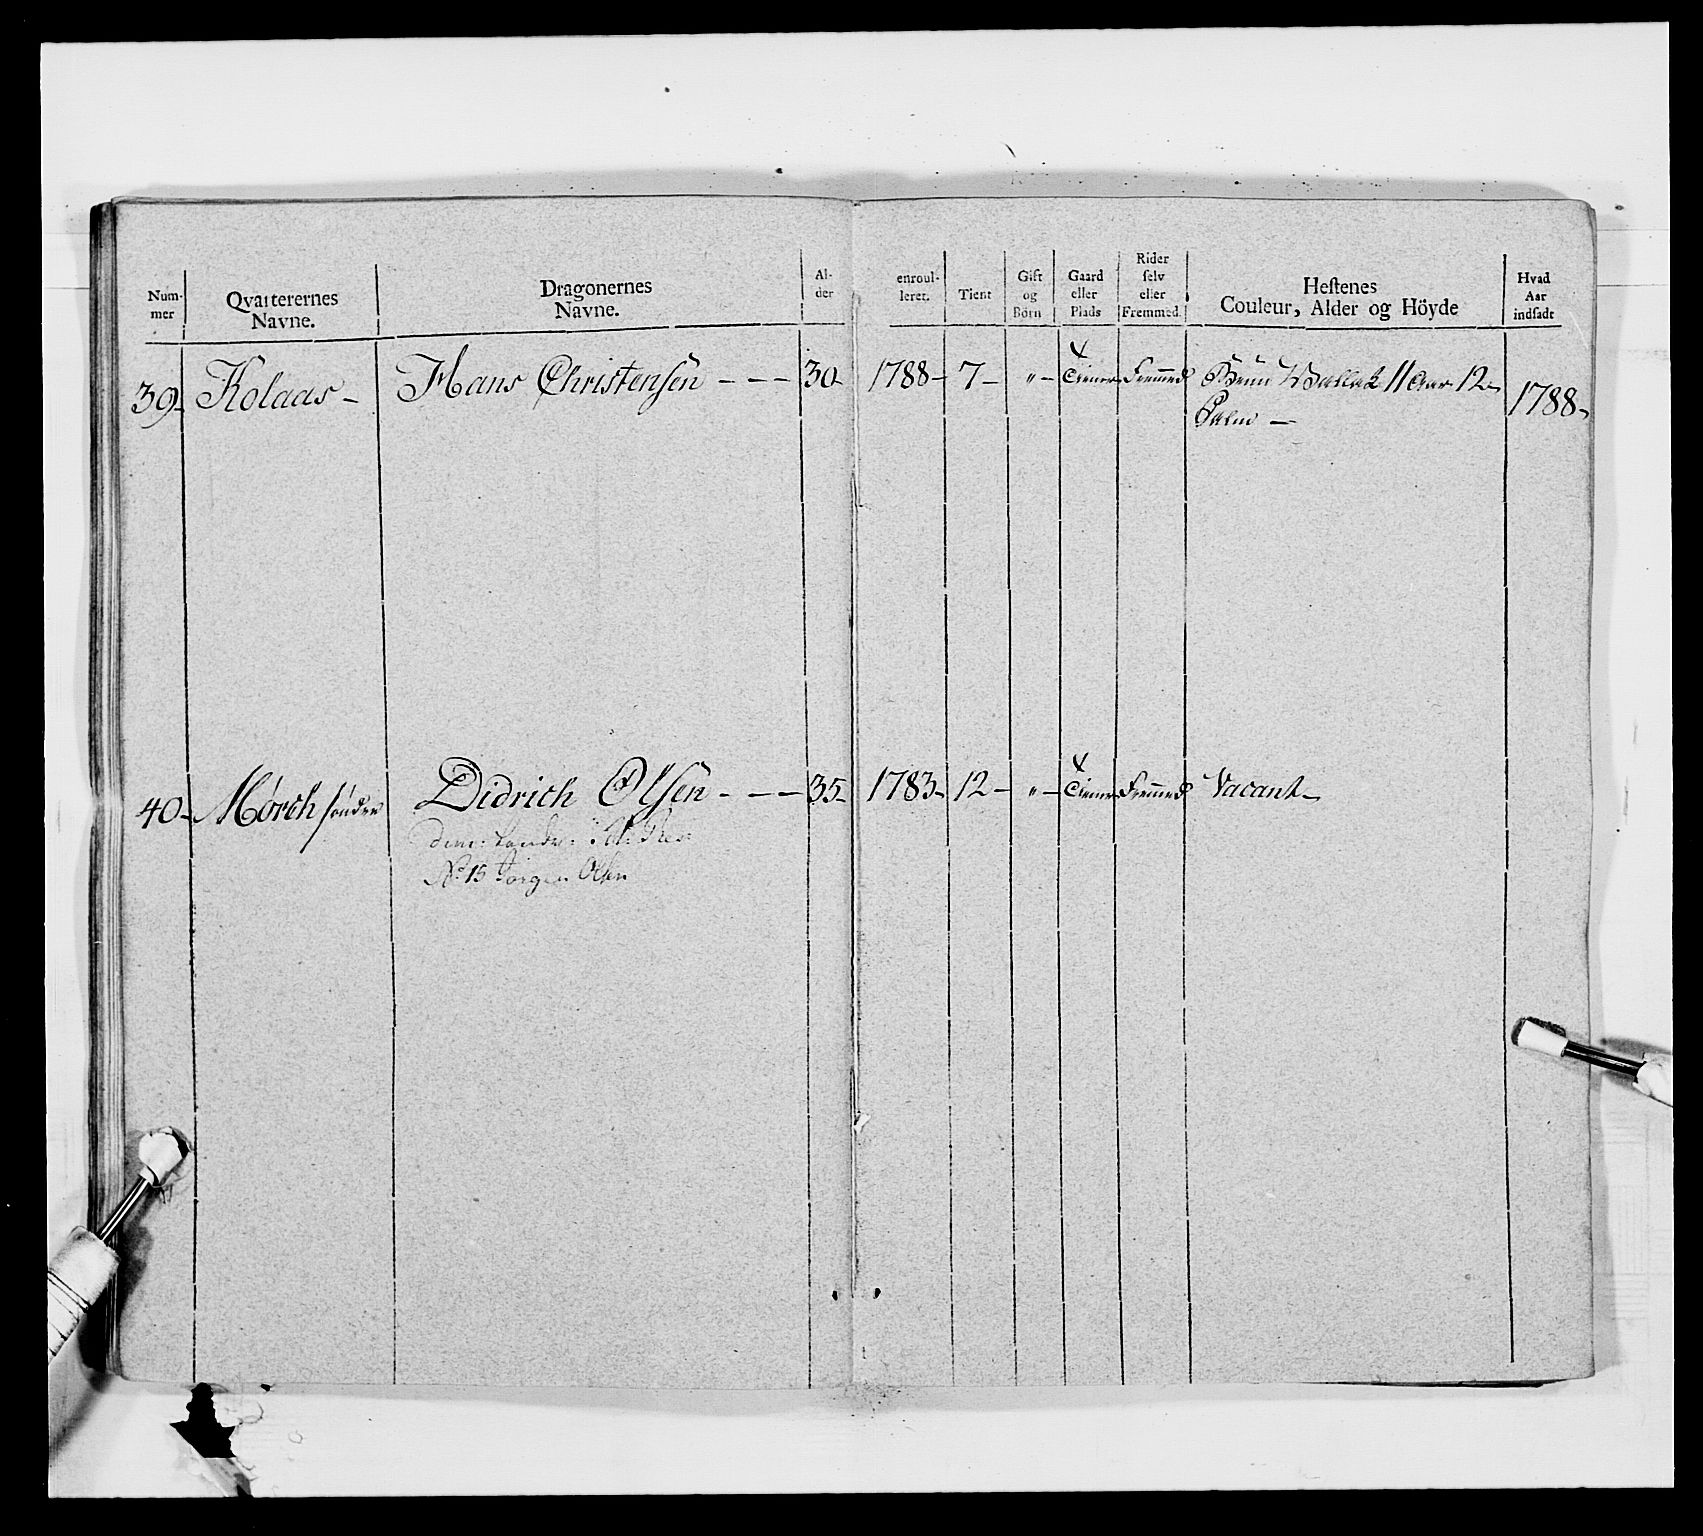 Num-
mer
Qvarterernes
Navne.
Dragonernes
Navne.
Al-
der
enroul-
leret.
Tient
Gift
og
Börn
Gaard
eller
Plads
Rider
selv
eller
Fremmed.
Hestenes
Couleur, Alder og Höyde
Hvad
Aar
indsadt
39- Kolaas - Hans Christensen - - - 30- 1788- 7- "- Tiener Fremmed Brun Vallak 11 Aar 12-
Palm - 1788-
40- Mörch sönder Didrich Olsen - - - 35- 1783- 12- "- Tiener Fremmed Vacant-
No 15 Jörgen Olsen